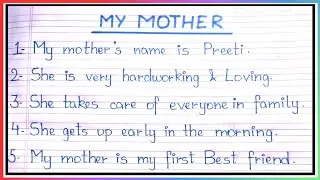 MY MOTHER
1- My mother's name is Preeti.
2- She is very hardworking & Loving.
3- She takes care of everyone in family.
4- She gets up early in the morning.
5- My mother is my first Best friend.